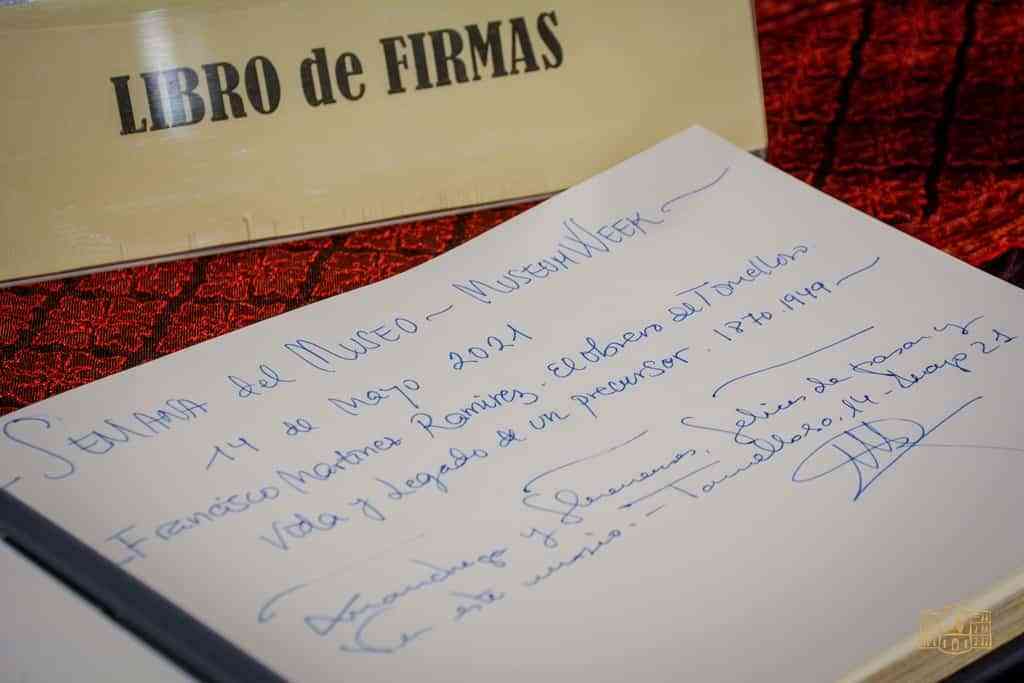 LIBRO de FIRMAS
SEMANA del MUSEO ~ MUSEUM WEEK
14 de Mayo 2021
Francisco Martínez Ramírez. El obrero de Tomelloso.
Vida y legado de un precursor. 1870.1949
y felices de pasar
por este museo. - Tomelloso, 14 - Mayo 21